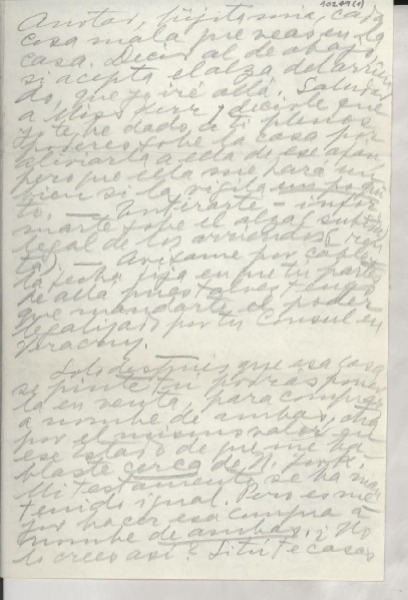 10249(1)
Anotar, hijita mía, cada
cosa mala que veas en la
casa. Decir al de abajo,
si acepta el alza del arrien
do, que yo iré allá. Saludar
a Miss y decirle que
yo te he dado a ti plenos
poderes sobe la casa por
aliviarla a ella de ese afán
pero que ella me hará un
bien si la vigila un poqui
to. — — infor
marte sobre el alza (subida)
legal de los arriendos
— Avísame por cable
la fecha fija en que tú partas
de allá pues tengo
que mandarte el poder
legalizado por tu Consul en
Veracruz.
Solo después que esa casa
se pinte tú podrás poner
la en venta, para comprar
a nombre de ambas, otra
por el mismo valor, en
ese Estado de que me ha
blaste cerca de N. York.
Mi testamento se ha man
tenido igual. Pero es me
jor hacer esa compra a
nombre de ambas. ¿No
lo crees así? Si tú te casas